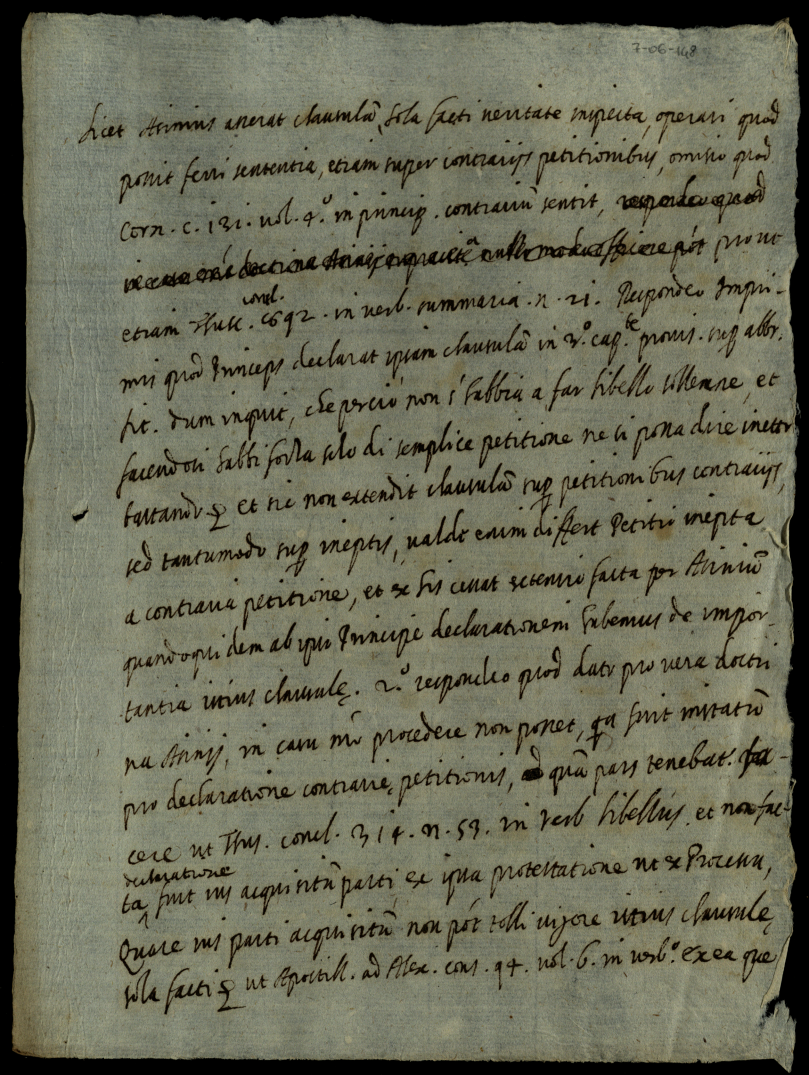 7-06-148
Licet Asinius asserat clausulā, sola facti veritate inspecta, operari quod
possit ferri sententia, etiam super contrarijs petitionibus, omisso quod
Corn. c. 131. vol. 4.º in princip. contrariū sentit, respondeo quod
in casu nr̄o doctrina Asinij pōt prout
etiam Thusc. concl. 692. in verb. summaria. n. 21. Respondeo Impri-
mis quod Princeps declarat ipsam clausulā in 3.º cap.te provis. sup abbr.
lit. dum inquit, che perciò non s'habbia a far libello sollemne, et
facendosi habbi forza solo di semplice petitione ne si possa dire inetto
tastando et sic non extendit clausulā sup petitionibus contrarijs,
sed tantumodo sup ineptis, valde enim differt Petitio inepta
a contraria petitione, et ex his cessat extensio facta per Asiniū
quandoquidem ab ipso Principe declarationem habemus de impor-
tantia istius clausulę. 2.º respondeo quod dato pro vera doctri
na Asinij, in casu nr̄o procedere non posset, qa fuit instatū
pro declaratione contrarię petitionis, ad quā pars tenebat. fa-
cere ut Thus. concl. 314. n. 53. in verb libellus. et non fac-
declaratione
ta fuit ius acquisitū parti ex ipsa protestatione ut ex Processu,
Quare ius parti acquisitū non pōt tolli vigore istius clausulę
sola facti ut Apostill. ad Alex. cons. 94. vol. 6. in verb.º ex ea que